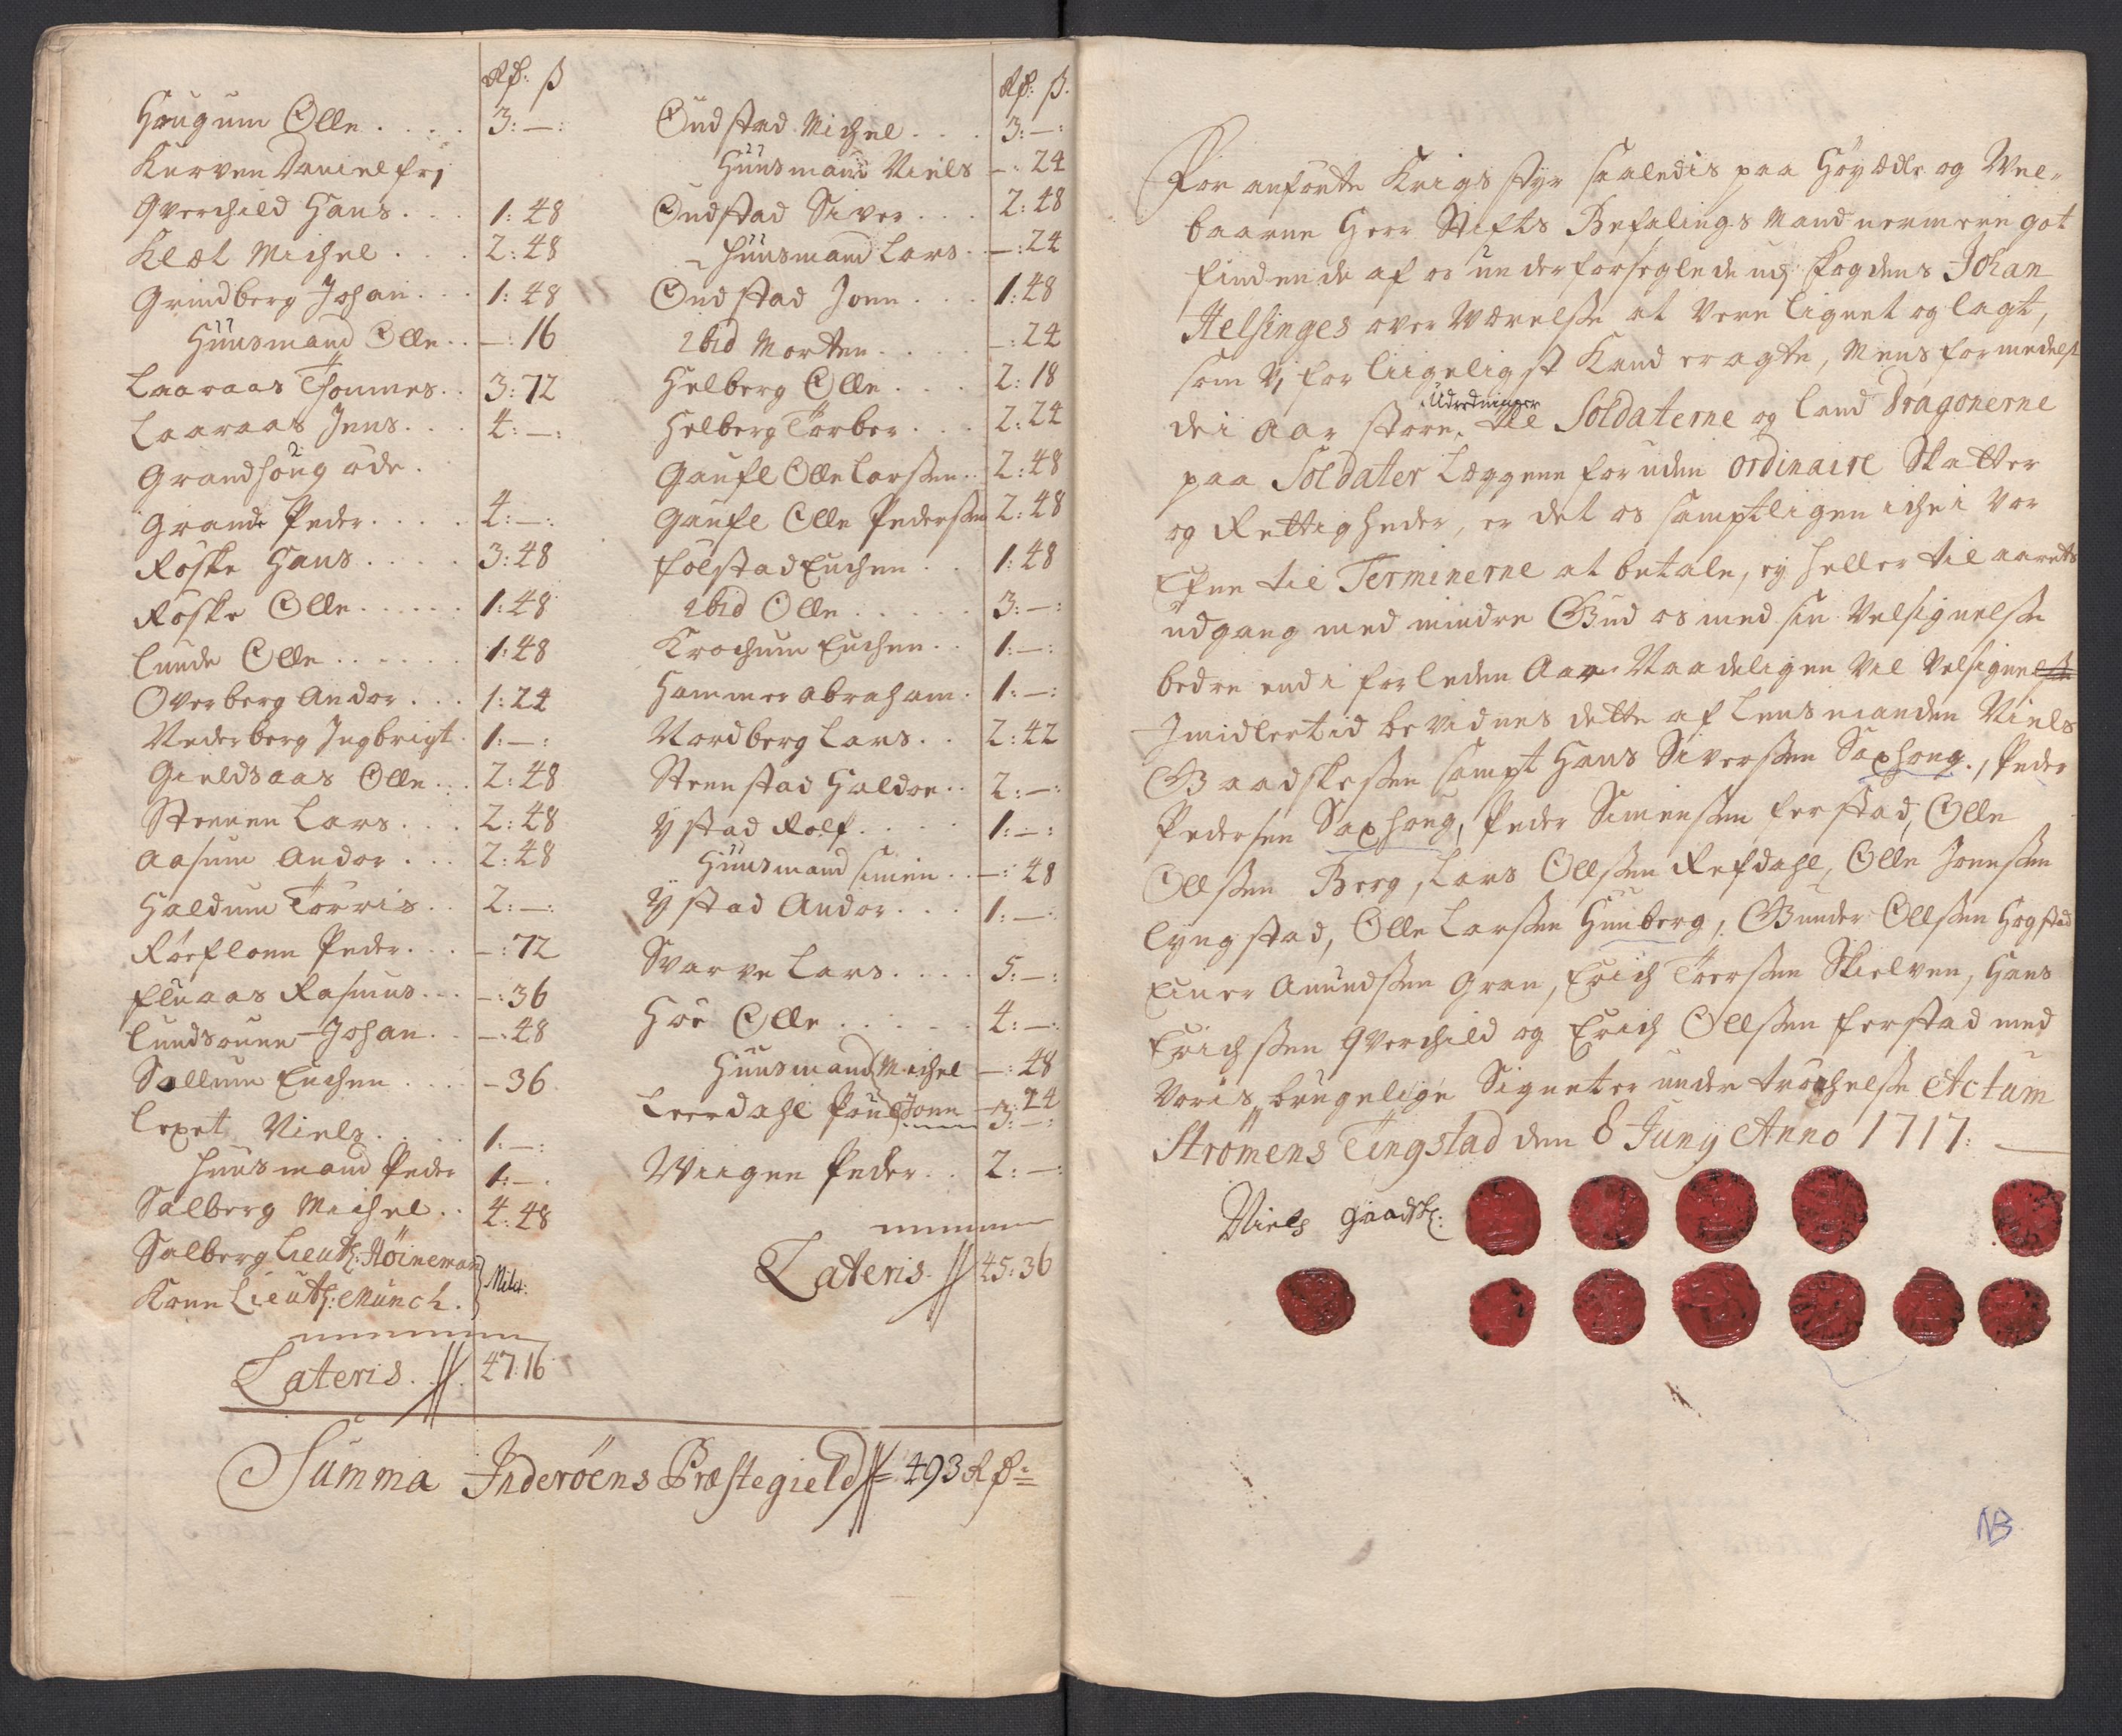 Rd: ß
Haugum Olle . . . . 3: —:
Kurven Daniel frj
Qverchild Hans . . . 1: 48
Klæt Michel . . . 2: 48
Grindberg Johan . . . 1: 48
Huusmand Olle . . —: 16
Laaraas Thommes . . 3: 72
Laaraas Jens . . . 4: —:
Grandhoug öde .
Grande Peder . . . . 4: —:
Röske Hans . . . . 3: 48
Röske Olle . . . . . 1: 48
Lunde Olle . . . . . . 1: 48
Overberg Andor . . . 1: 24
Nederberg Ingbrigt . 1: —:
Gieldsaas Olle . . . 2: 48
Strenen Lars . . . 2: 48
Aasum Andor . . . 2: 48
Haldum Törris . . 2: —:
Röefloen Peder . . . —: 72
Fluaas Rasmus . . . —: 36
Lundsouen Johan . . —: 48
Sallum Enchen . . . — 36
Lexet Niels . . . . 1: —:
Huusmand Peder 1: —.
Salberg Michel . . 4: 48
Salberg Lieutn: Höineman
Korse Lieutn: Münch . } Milit:
Lateris . // . 47: 16
Rd: ß.
Oudstad Michel . . . 3: —:
Huusmand Niels —: 24
Oudstad Siver . . . 2: 48
Huusmand Lars . —: 24
Oudstad Jonn . . . 1: 48
ibid Morten . . . . —: 24
Helberg Olle . . . 2: 18
Helberg Torber . . . 2: 24
Gaufl Olle Larssen . . 2: 48
Gaufl Olle Pederssen 2: 48
Folstad Enchen . . 1: 48
ibid Olle . . . . . . 3: —:
Krochum Enchen . . 1: —:
Hammer Abraham . 1: —:
Nordberg Lars . . 2: 42
Steenstad Haldor . . 2: —:
Ystad Rolf . . . . . 1: —:
Huusmand Simen . . —: 48
Ystad Andor . . . 1: —:
Svarve Lars . . . . 5: —:
Hoe Olle . . . . . 4: —:
Huusmand { Michel —: 48
Jonn —: 24
Leerdahl Poul . . . . 3: —:
Wiigen Peder . . 2: —:
Lateris . // 45: 36
Summa Inderöens Præstegield // 493 Rd:
For anförte Krigs styr saaledis paa Höyædle og Wel-
baarne Herr Stifts Befalings Mand nermere got
findende af os underforseglede udj Fogdens Johan
Helsinges over Wærelse at vere lignet og lagt,
som vj forliigeligst Kand eragte, Mens formedelst
de i Aar store Udredninger til Soldaterne og Land Dragonerne
paa Soldater Læggene foruden ordinaire Skatter
og Rettigheder, er det os samptligen iche i vor
Efne til Terminerne at betale, ey heller til aarets
udgang med mindre Gud os med sin Velsignelse
bedre end i forleden Aar Naadeligen vil velsigne
Imidlertid bevidnes dette af Lensmanden Niels
Gaadskessen sampt Hans Siverssen Saxhoug, Peder
Pedersen Saxhoug, Peder Simenssen Ferstad, Olle
Ollssen Berg, Lars Ollssen Refdahl, Olle Jonnssen
Lyngstad, Olle Larssen Hunberg, Gunder Ollssen Hogstad
Einer Amundssen Gran, Erich Toerssen Skielven, Hans
Erichssen Qverchild og Erich Ollssen Ferstad med
Voris brugelige Signeter under trochelse Actum
Strömens Tingstad den 8 Junij Anno 1717: —
Niels Gaadsk:
NB